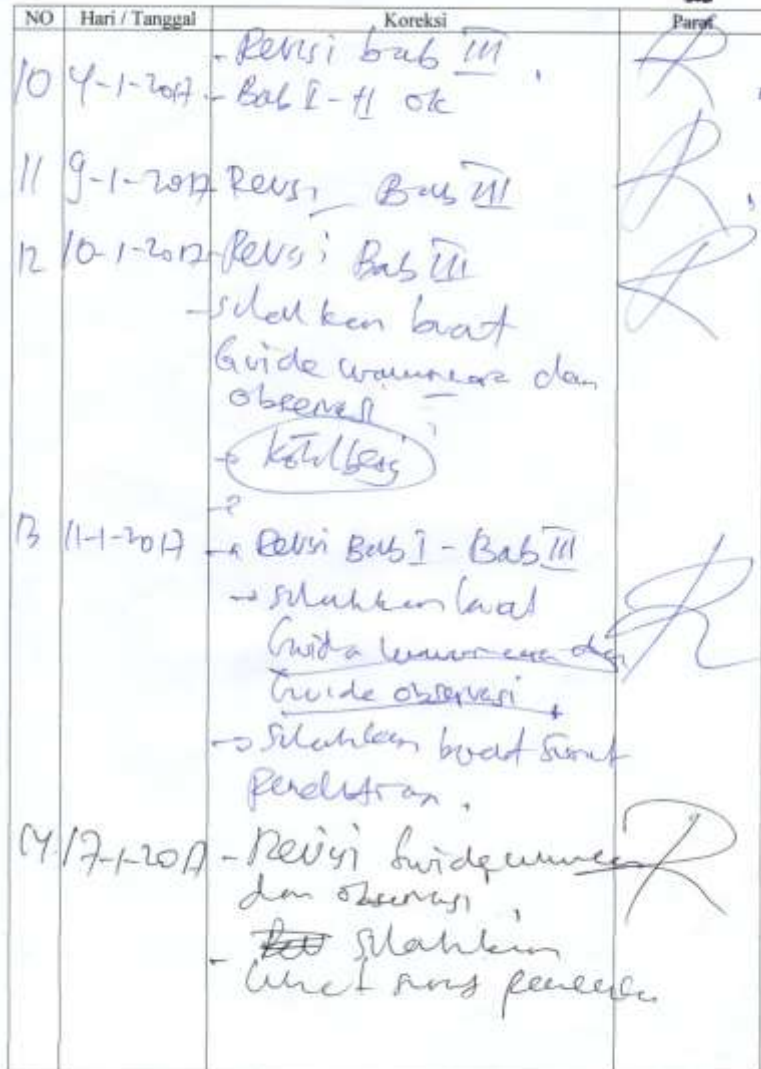 NO Hari / Tanggal Koreksi Paraf
- Revisi bab III
10 4-1-2017 - Bab I - II ok
11 9-1-2017 Revisi Bab III
12 10-1-2017 - Revisi Bab III
- silahkan buat
Guide wawancara dan
observasi
→ Kohlberg
13 11-1-2017 → Revisi Bab I - Bab III
→ silahkan buat
Guide wawancara dan
Guide observasi
→ Silahkan buat surat
penelitian.
14 17-1-2017 - Revisi Guide wawancara
dan observasi
- silahkan
buat surat